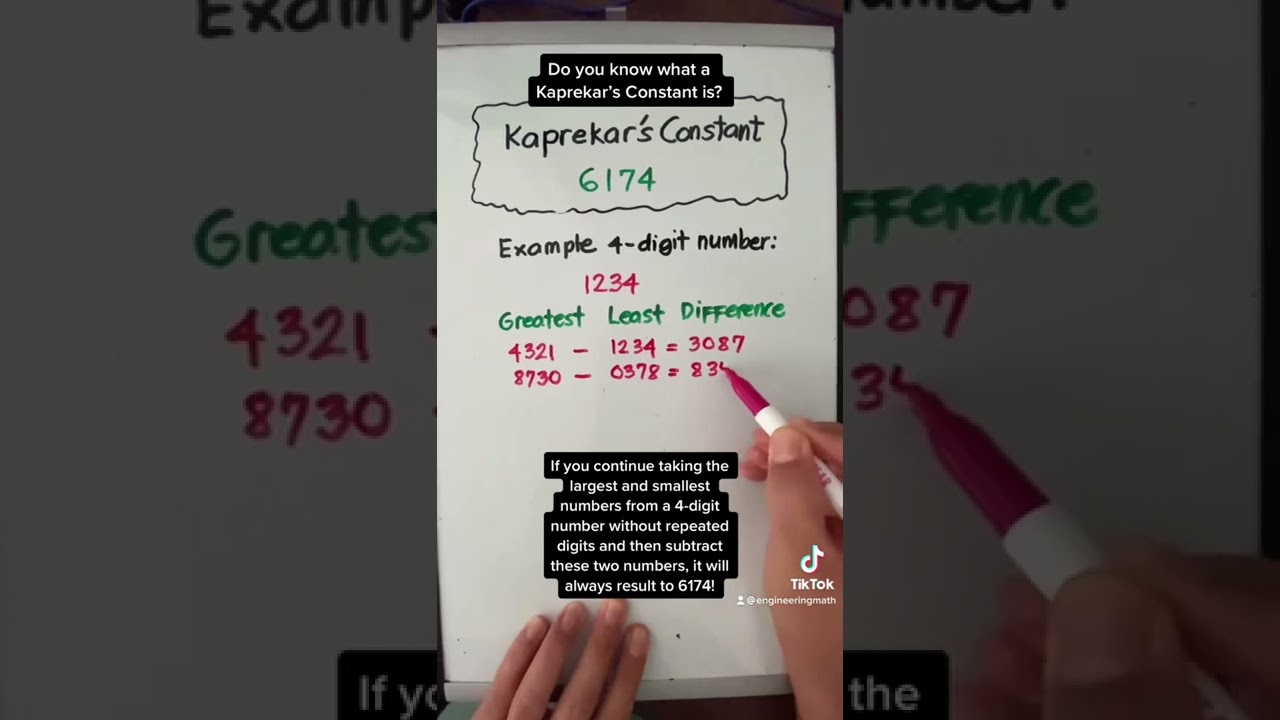 Do you know what a
Kaprekar's Constant is?
Kaprekar's Constant
6174
Example 4-digit number:
1234
Greatest Least Difference
4321 - 1234 = 3087
8730 - 0378 = 83
If you continue taking the
largest and smallest
numbers from a 4-digit
number without repeated
digits and then subtract
these two numbers, it will
always result to 6174!
TikTok
@engineeringmath
number:
Greates
fference
4321
087
8730
34
If yo
the